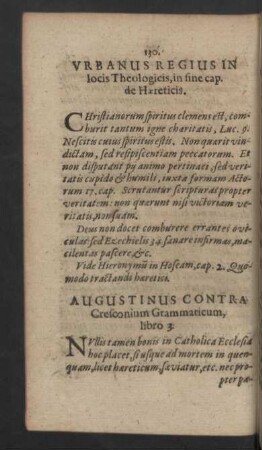 130.
VRBANUS REGIUS IN
locis Theologicis, in fine cap.
de Hæreticis.
CHristianorum spiritus clemens est, com-
burit tantum igne charitatis, Luc. 9.
Nescitis cuius spiritus estis. Non quærit vin-
dictam, sed resipiscentiam peccatorum. Et
non disputant py animo pertinaci, sed veri-
tatis cupido & humili, iuxta formam Acto-
rum 17. cap. Scrutantur scripturas propter
veritatem: non quærunt nisi victoriam ve-
ritatis, non suam.
Deus non docet comburere errantes ovi-
culas: sed Ezechielis 34. sanare infirmas, ma-
cilentas pascere, &c.
Vide Hieronymũ in Hoseam, cap. 2. Quo-
modo tractandi hæretici.
AUGUSTINUS CONTRA
Cresconium Grammaticum,
libro 3.
NVllis tamen bonis in Catholica Ecclesia
hoc placet, si usque ad mortem in quen-
quam, licet hæreticum, sæviatur, etc. nec pro-
pter pa-